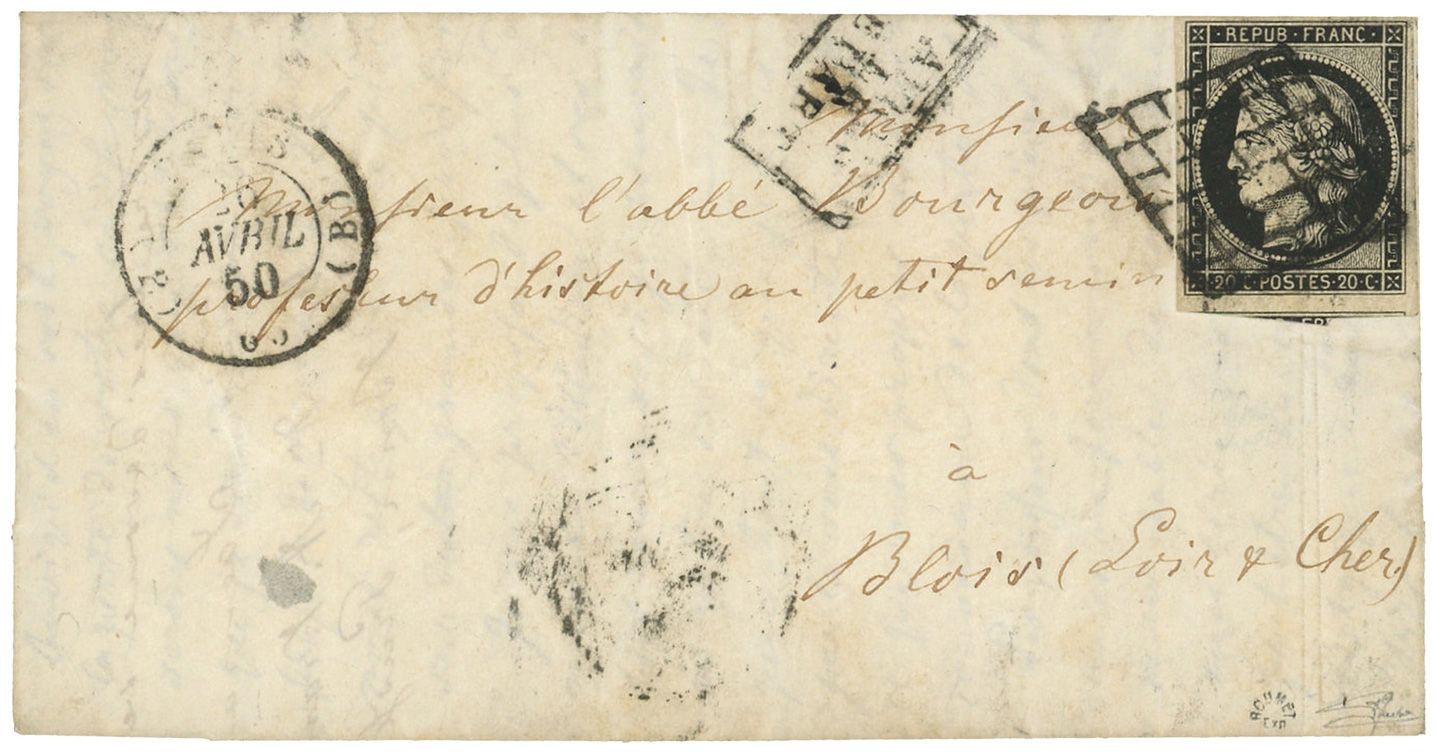 REPUB · FRANC ·
Monsieur
Monsieur l'abbé Bourgeois
professeur d'histoire au petit semin
à
Blois (Loir & Cher)
20 · C · POSTES · 20 · C ·
AVRIL
50
(B)
ROUMET
EXP